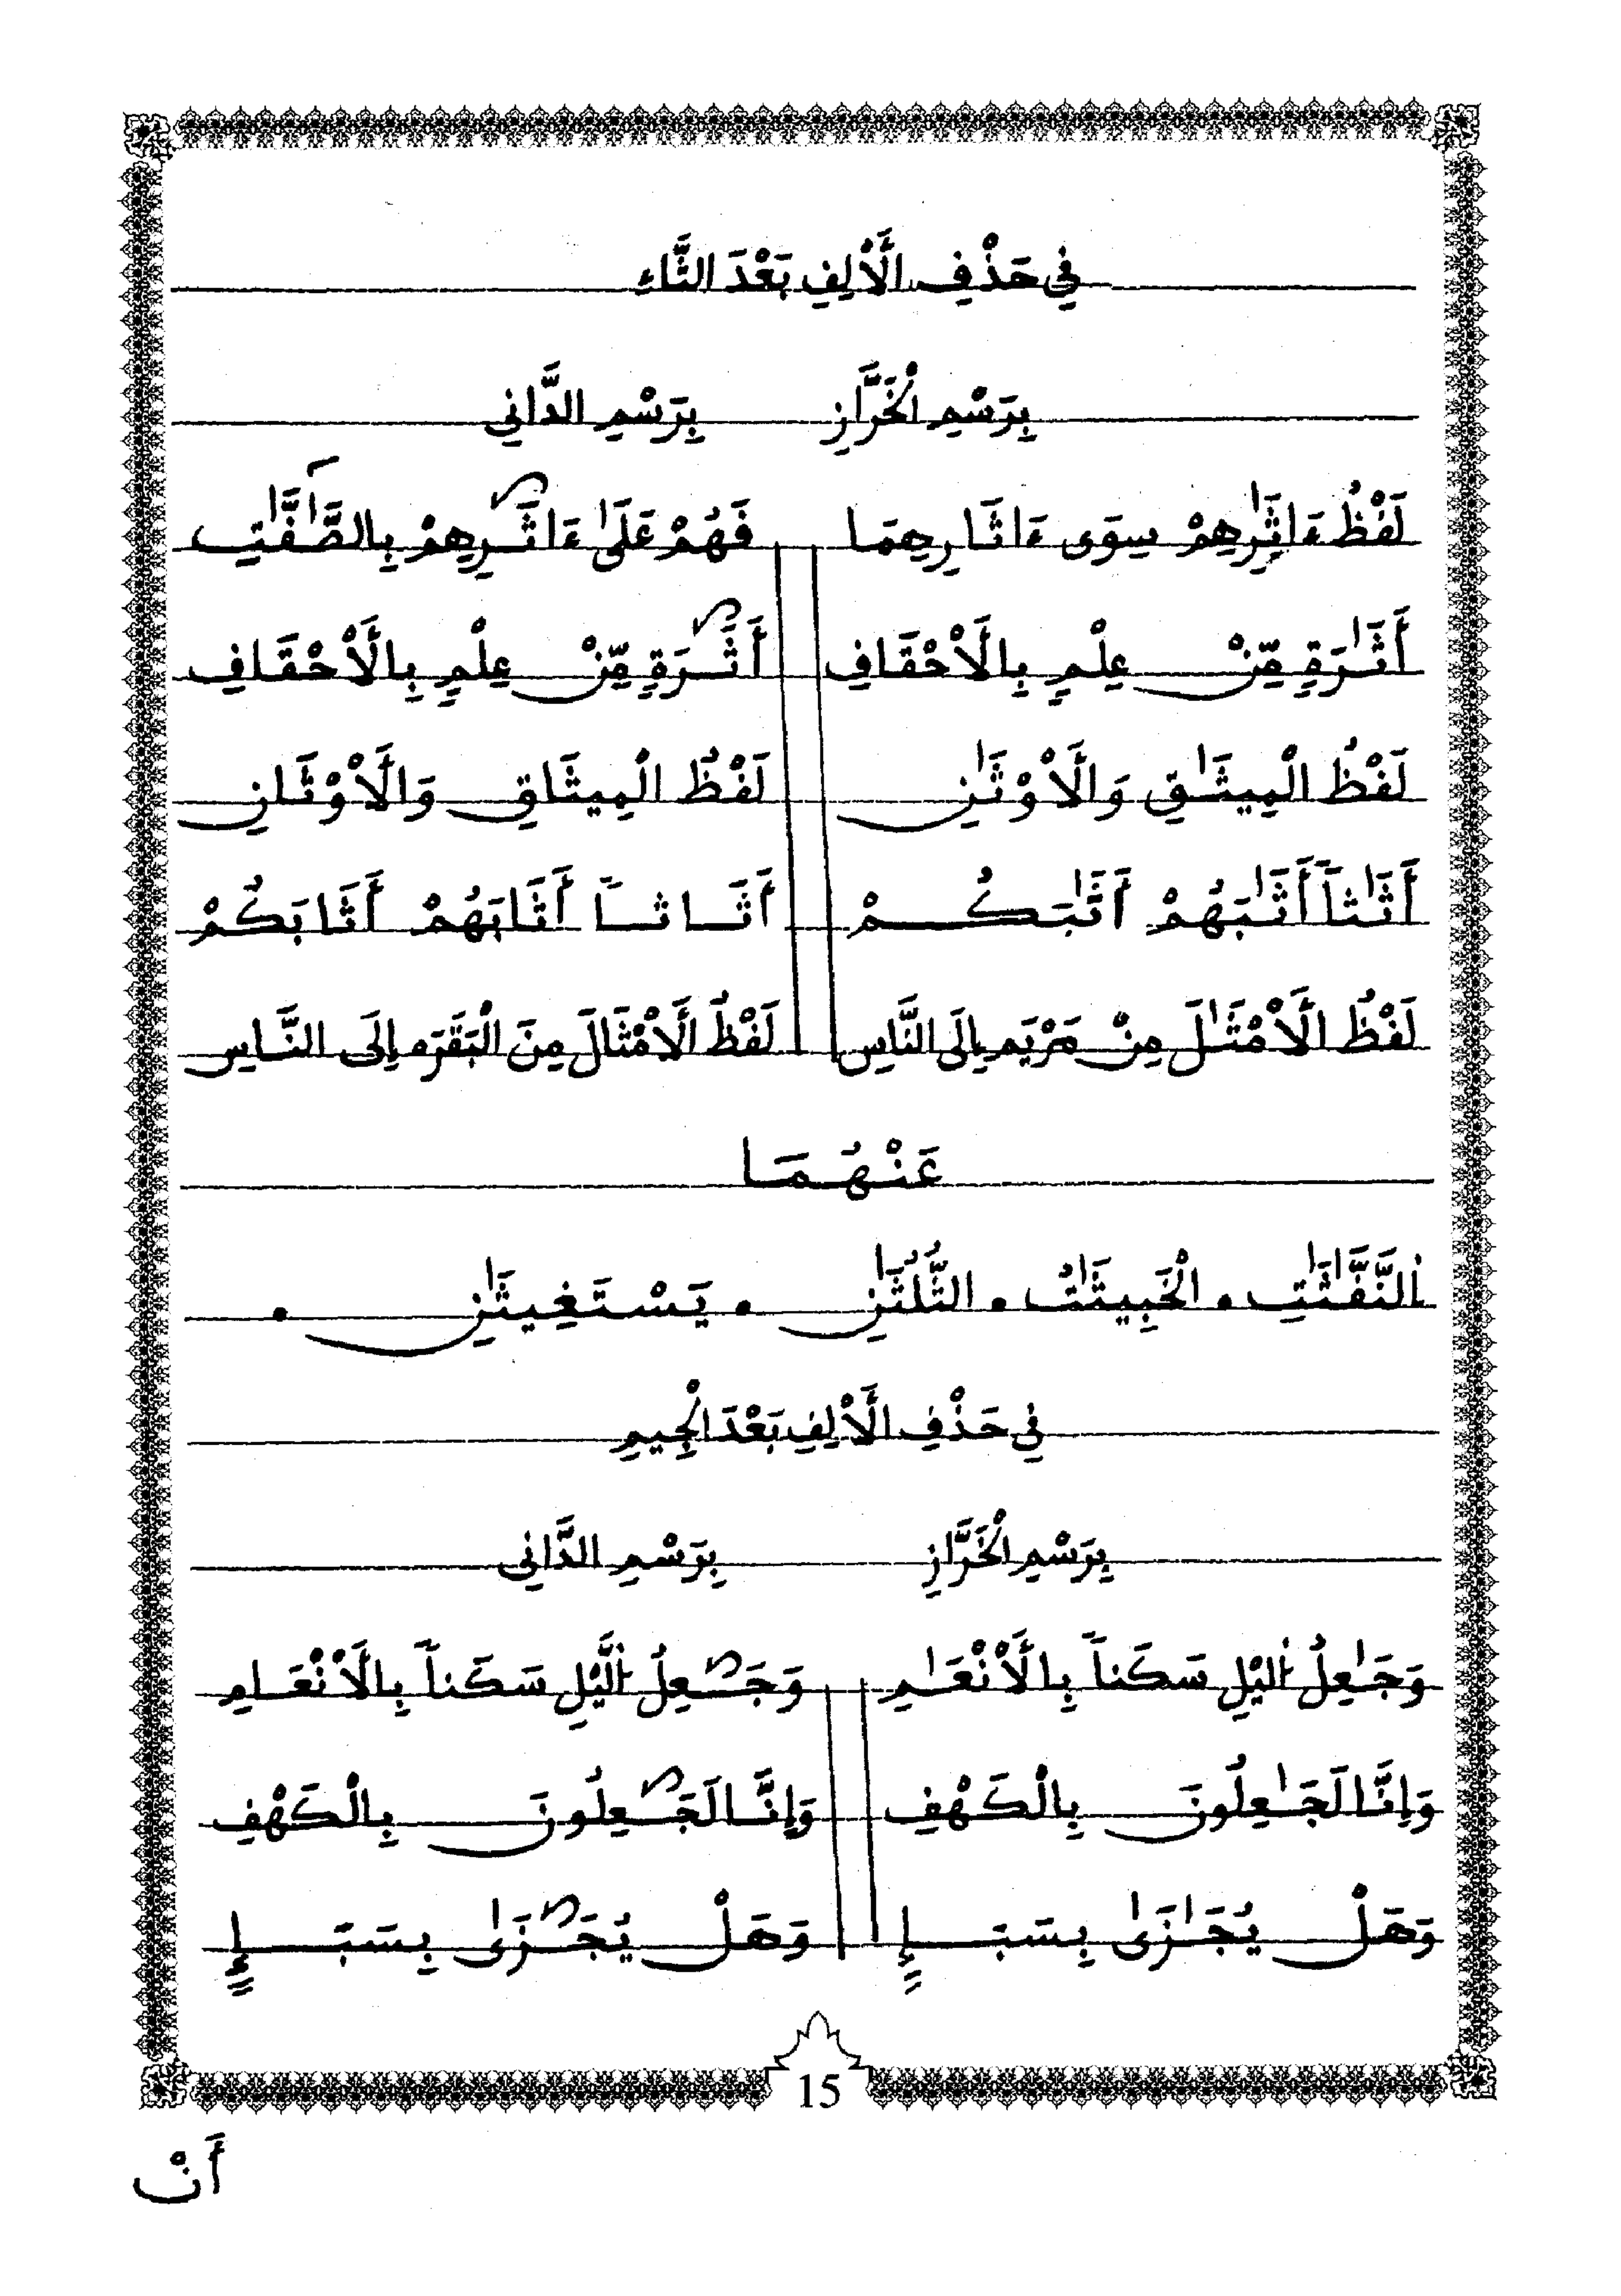 فِي حَذْفِ الْأَلِفِ بَعْدَ الثَّاءِ
بِرَسْمِ الْخَرَّازِ بِرَسْمِ الدَّانِي
لَفْظُ ءَاثَٰرِهِمْ سِوَى ءَاثَارِهِمَا فَهُمْ عَلَىٰ ءَاثَٰرِهِمْ بِالصَّٰٓفَّٰتِ
أَثَٰرَةٍ مِّنْ عِلْمٍ بِالْأَحْقَافِ أَثَٰرَةٍ مِّنْ عِلْمٍ بِالْأَحْقَافِ
لَفْظُ الْمِيثَٰقِ وَالْأَوْثَٰنِ لَفْظُ الْمِيثَاقِ وَالْأَوْثَانِ
أَثَٰثاً أَثَٰبَهُمْ أَثَٰبَكُمْ أَثَاثاً أَثَابَهُمْ أَثَابَكُمْ
لَفْظُ الْأَمْثَٰلَ مِنْ مَرْيَم إِلَى النَّاسِ لَفْظُ الْأَمْثَالَ مِنَ الْبَقَرَه إِلَى النَّاسِ
عَنْهُمَا
اَلنَّفَّٰثَٰتِ • الْخَبِيثَٰتُ • الثُّلُثَٰنِ • يَسْتَغِيثَٰنِ •
فِي حَذْفِ الْأَلِفِ بَعْدَ الْجِيمِ
بِرَسْمِ الْخَرَّازِ بِرَسْمِ الدَّانِي
وَجَٰعِلُ اُلَّيْلِ سَكَناً بِالْأَنْعَٰمِ وَجَٰعِلُ اُلَّيْلِ سَكَناً بِالْأَنْعَامِ
وَإِنَّا لَجَٰعِلُونَ بِالْكَهْفِ وَإِنَّا لَجَٰعِلُونَ بِالْكَهْفِ
وَهَلْ يُجَٰزَىٰ بِسَبَإٍ وَهَلْ يُجَٰزَىٰ بِسَبَإٍ
15
أَنْ